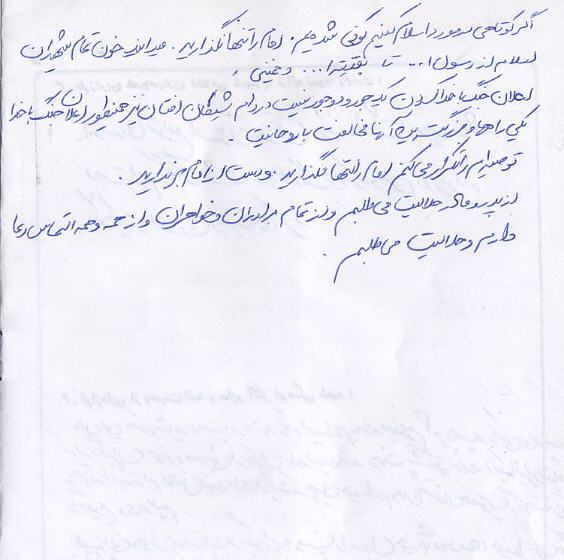 اگر کوتاهی در مورد اسلام کنیم کوفی شده‌ایم. امام را تنها نگذارید. میدانید خون تمام شهیدان
اسلام از رسول ا... تا بقیة ا... و خمینی
اعلان جنگ با خدا کردن یک جور و دو جور نیست در دام افتادن نیز همینطور اعلان جنگ با خدا
یکی راهها و بزرگترین آنها مخالفت با روحانیت.
توصیه‌ام را تکرار می‌کنم امام را تنها نگذارید. و دست از امام برندارید.
از پدر و مادر حلالیت می‌طلبم و از تمام برادران و خواهران و از همه و همه التماس دعا
دارم و حلالیت می‌طلبم.